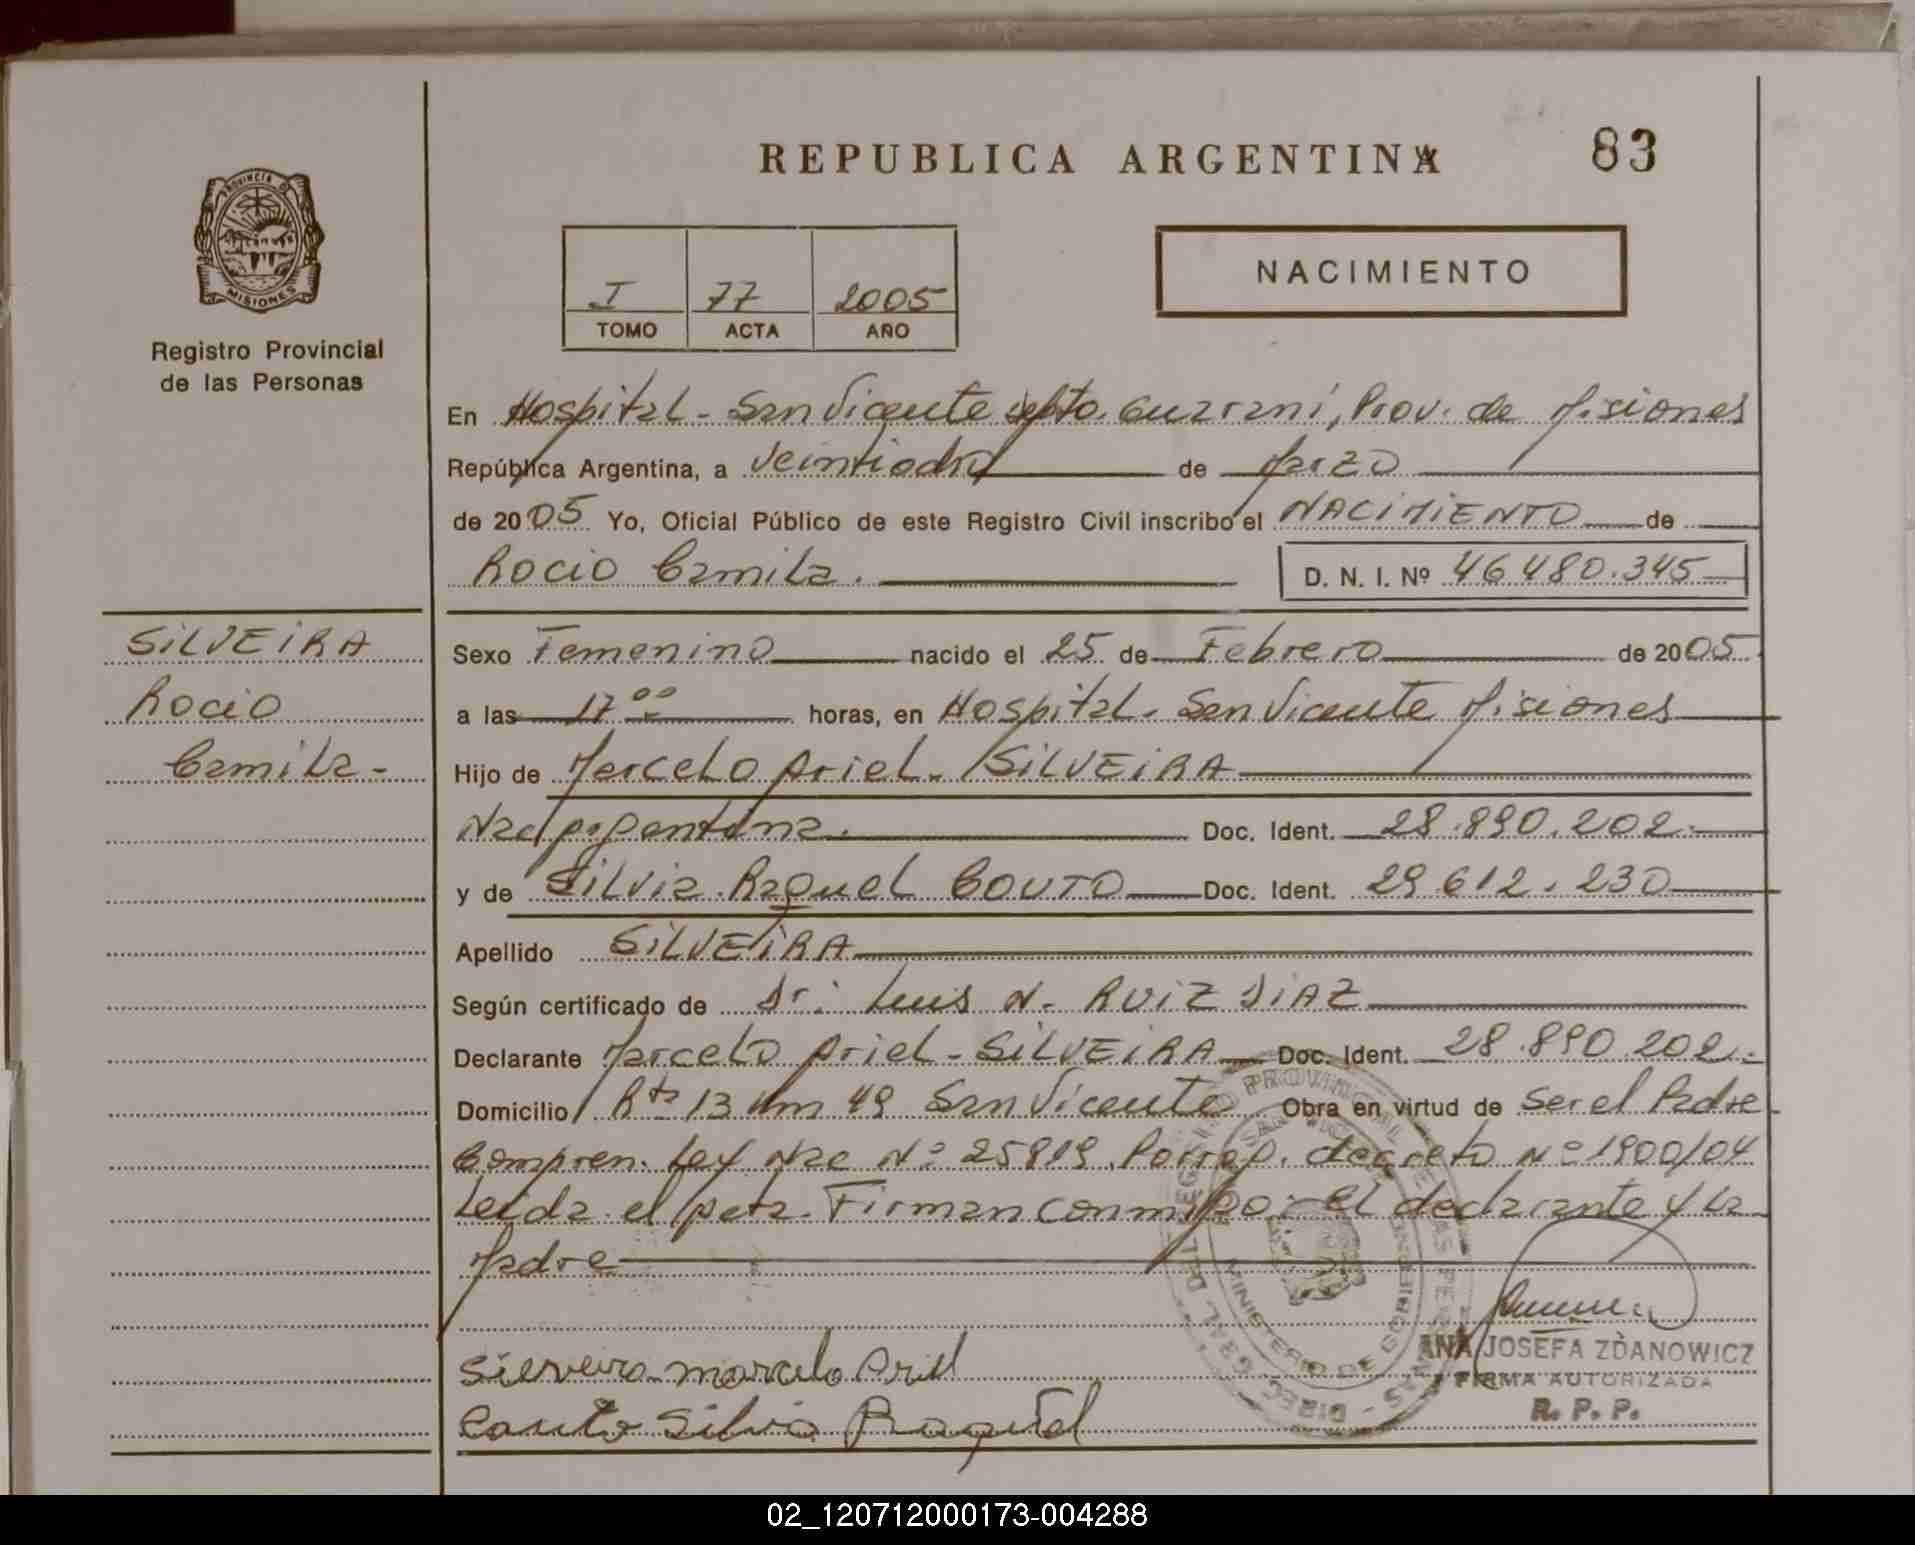 REPUBLICA ARGENTINA
83
PROVINCIA DE
MISIONES
Registro Provincial
de las Personas
I 77 2005
TOMO ACTA AÑO
NACIMIENTO
En Hospital - San Vicente dpto. Guaraní, Prov. de Misiones
República Argentina, a veintiocho de Marzo
de 2005 Yo, Oficial Público de este Registro Civil inscribo el NACIMIENTO de
Rocio Camila. D. N. I. Nº 46480.345
SILVEIRA
Rocio
Camila -
Sexo Femenino nacido el 25 de Febrero de 2005
a las 17 00 horas, en Hospital - San Vicente Misiones
Hijo de Marcelo Ariel - SILVEIRA
Nac Argentina. Doc. Ident. 28.890.202.
y de Silvia Raquel COUTO Doc. Ident. 29612.230
Apellido SILVEIRA
Según certificado de Dr: Luis N. RUIZ DIAZ
Declarante Marcelo Ariel - SILVEIRA Doc. Ident. 28.890.202.
Domicilio Rta 13 Km 49 San Vicente Obra en virtud de Ser el Padre
Compren. Ley Nac Nº 25819. Porrog. decreto Nº 1900/04
Leida el Acta. Firman conmigo: El declarante y La
Madre
Silveira Marcelo Ariel
Couto Silvia Raquel
ANA JOSEFA ZDANOWICZ
FIRMA AUTORIZADA
R. P. P.
02_120712000173-004288